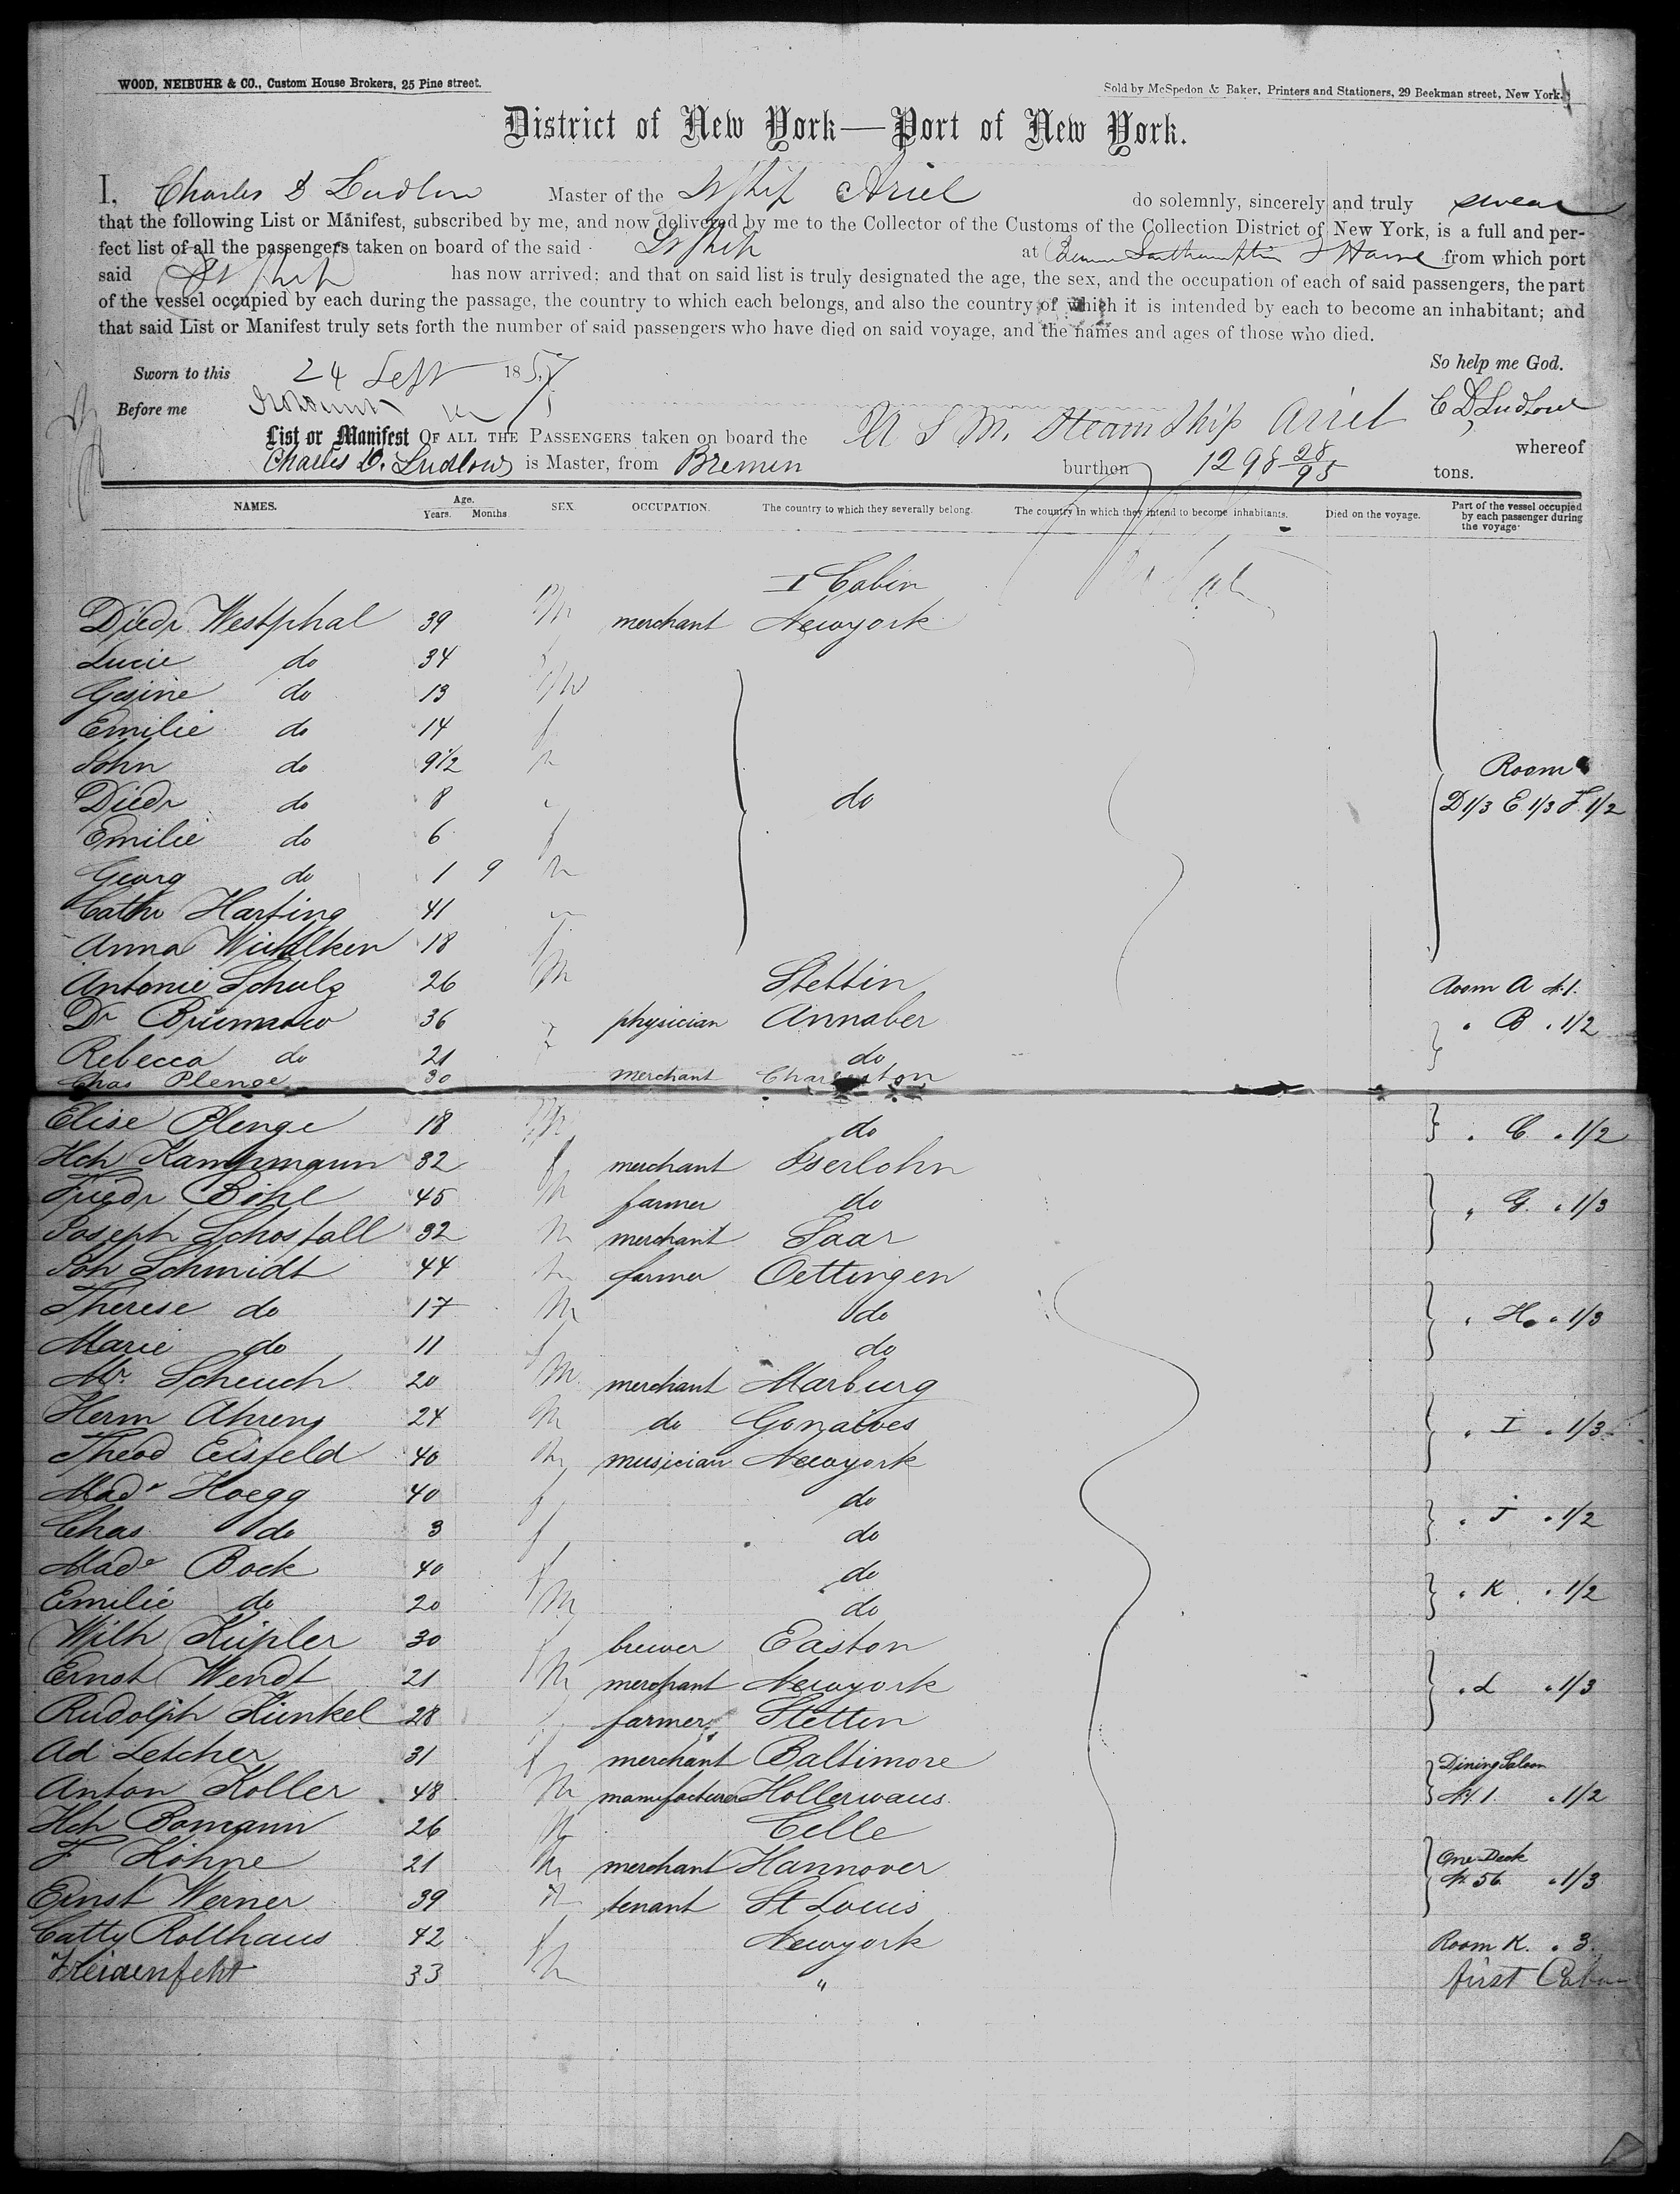 WOOD, NEIBUHR & CO., Custom House Brokers, 25 Pine street.
Sold by McSpedon & Baker, Printers and Stationers, 29 Beekman street, New York.
District of New York—Port of New York.
I, Charles D Ludlow Master of the St Ship Ariel do solemnly, sincerely and truly swear
that the following List or Manifest, subscribed by me, and now delivered by me to the Collector of the Customs of the Collection District of New York, is a full and per-
fect list of all the passengers taken on board of the said St Ship at Bremen Southampton & Havre from which port
said St Ship has now arrived; and that on said list is truly designated the age, the sex, and the occupation of each of said passengers, the part
of the vessel occupied by each during the passage, the country to which each belongs, and also the country of which it is intended by each to become an inhabitant; and
that said List or Manifest truly sets forth the number of said passengers who have died on said voyage, and the names and ages of those who died.
So help me God.
Sworn to this 24 Sept 1857
Before me
C D Ludlow
List or Manifest OF ALL THE PASSENGERS taken on board the U S M. Steam Ship Ariel whereof
Charles D. Ludlow is Master, from Bremen burthen 1298 28/95 tons.
NAMES. Age. Years. Months SEX OCCUPATION. The country to which they severally belong. The country in which they intend to become inhabitants. Died on the voyage. Part of the vessel occupied by each passenger during the voyage
I Cabin
Diedr Westphal 39 m merchant Newyork
Lucie do 34
Gesine do 13
Emilie do 14 f
John do 9 1/2
Diedr do 8 do Room D 1/3 E 1/3 F 1/2
Emilie do 6 f
Georg do 1 9
Cathr Harting 41
Anna 18
Antonie Schulz 26 m Stettin Room A N. 1.
Dr 36 physician Annaber " B " 1/2
Rebecca do 21 do
Chas Plenge 30 merchant Charleston
Elise Plenge 18 do " C " 1/2
Hch Kampmann 32 merchant Iserlohn
Friedr Böhl 45 farmer do " G " 1/3
Joseph Schosfall 32 merchant Saar
Joh Schmidt 44 farmer Oettingen
Therese do 17 do " H " 1/3
Marie do 11 do
Mr. Scheuch 20 m merchant Marburg
Herm Ahrens 24 do Gonaives " I " 1/3
Theod Eisfeld 40 musician Newyork
Made Hoegg 40 f do
Chas do 3 f do " J " 1/2
Made Bock 40 f do
Emilie do 20 m do " K " 1/2
Wilh Küpler 30 brewer Easton
Ernst Wendt 21 merchant Newyork " L " 1/3
Rudolph Künkel 28 farmer Stettin
Ad Letcher 31 f merchant Baltimore Dining Saloon
Anton Koller 48 manufacturer Hollerwaus N. 1 " 1/2
Hch Bomann 26 Celle
F Köhne 21 merchant Hannover One Deck
Ernst Werner 39 tenant St Louis N. 56 " 1/3
Catty Rollhaus 42 f Newyork Room K. " 3.
33 " first Cabin